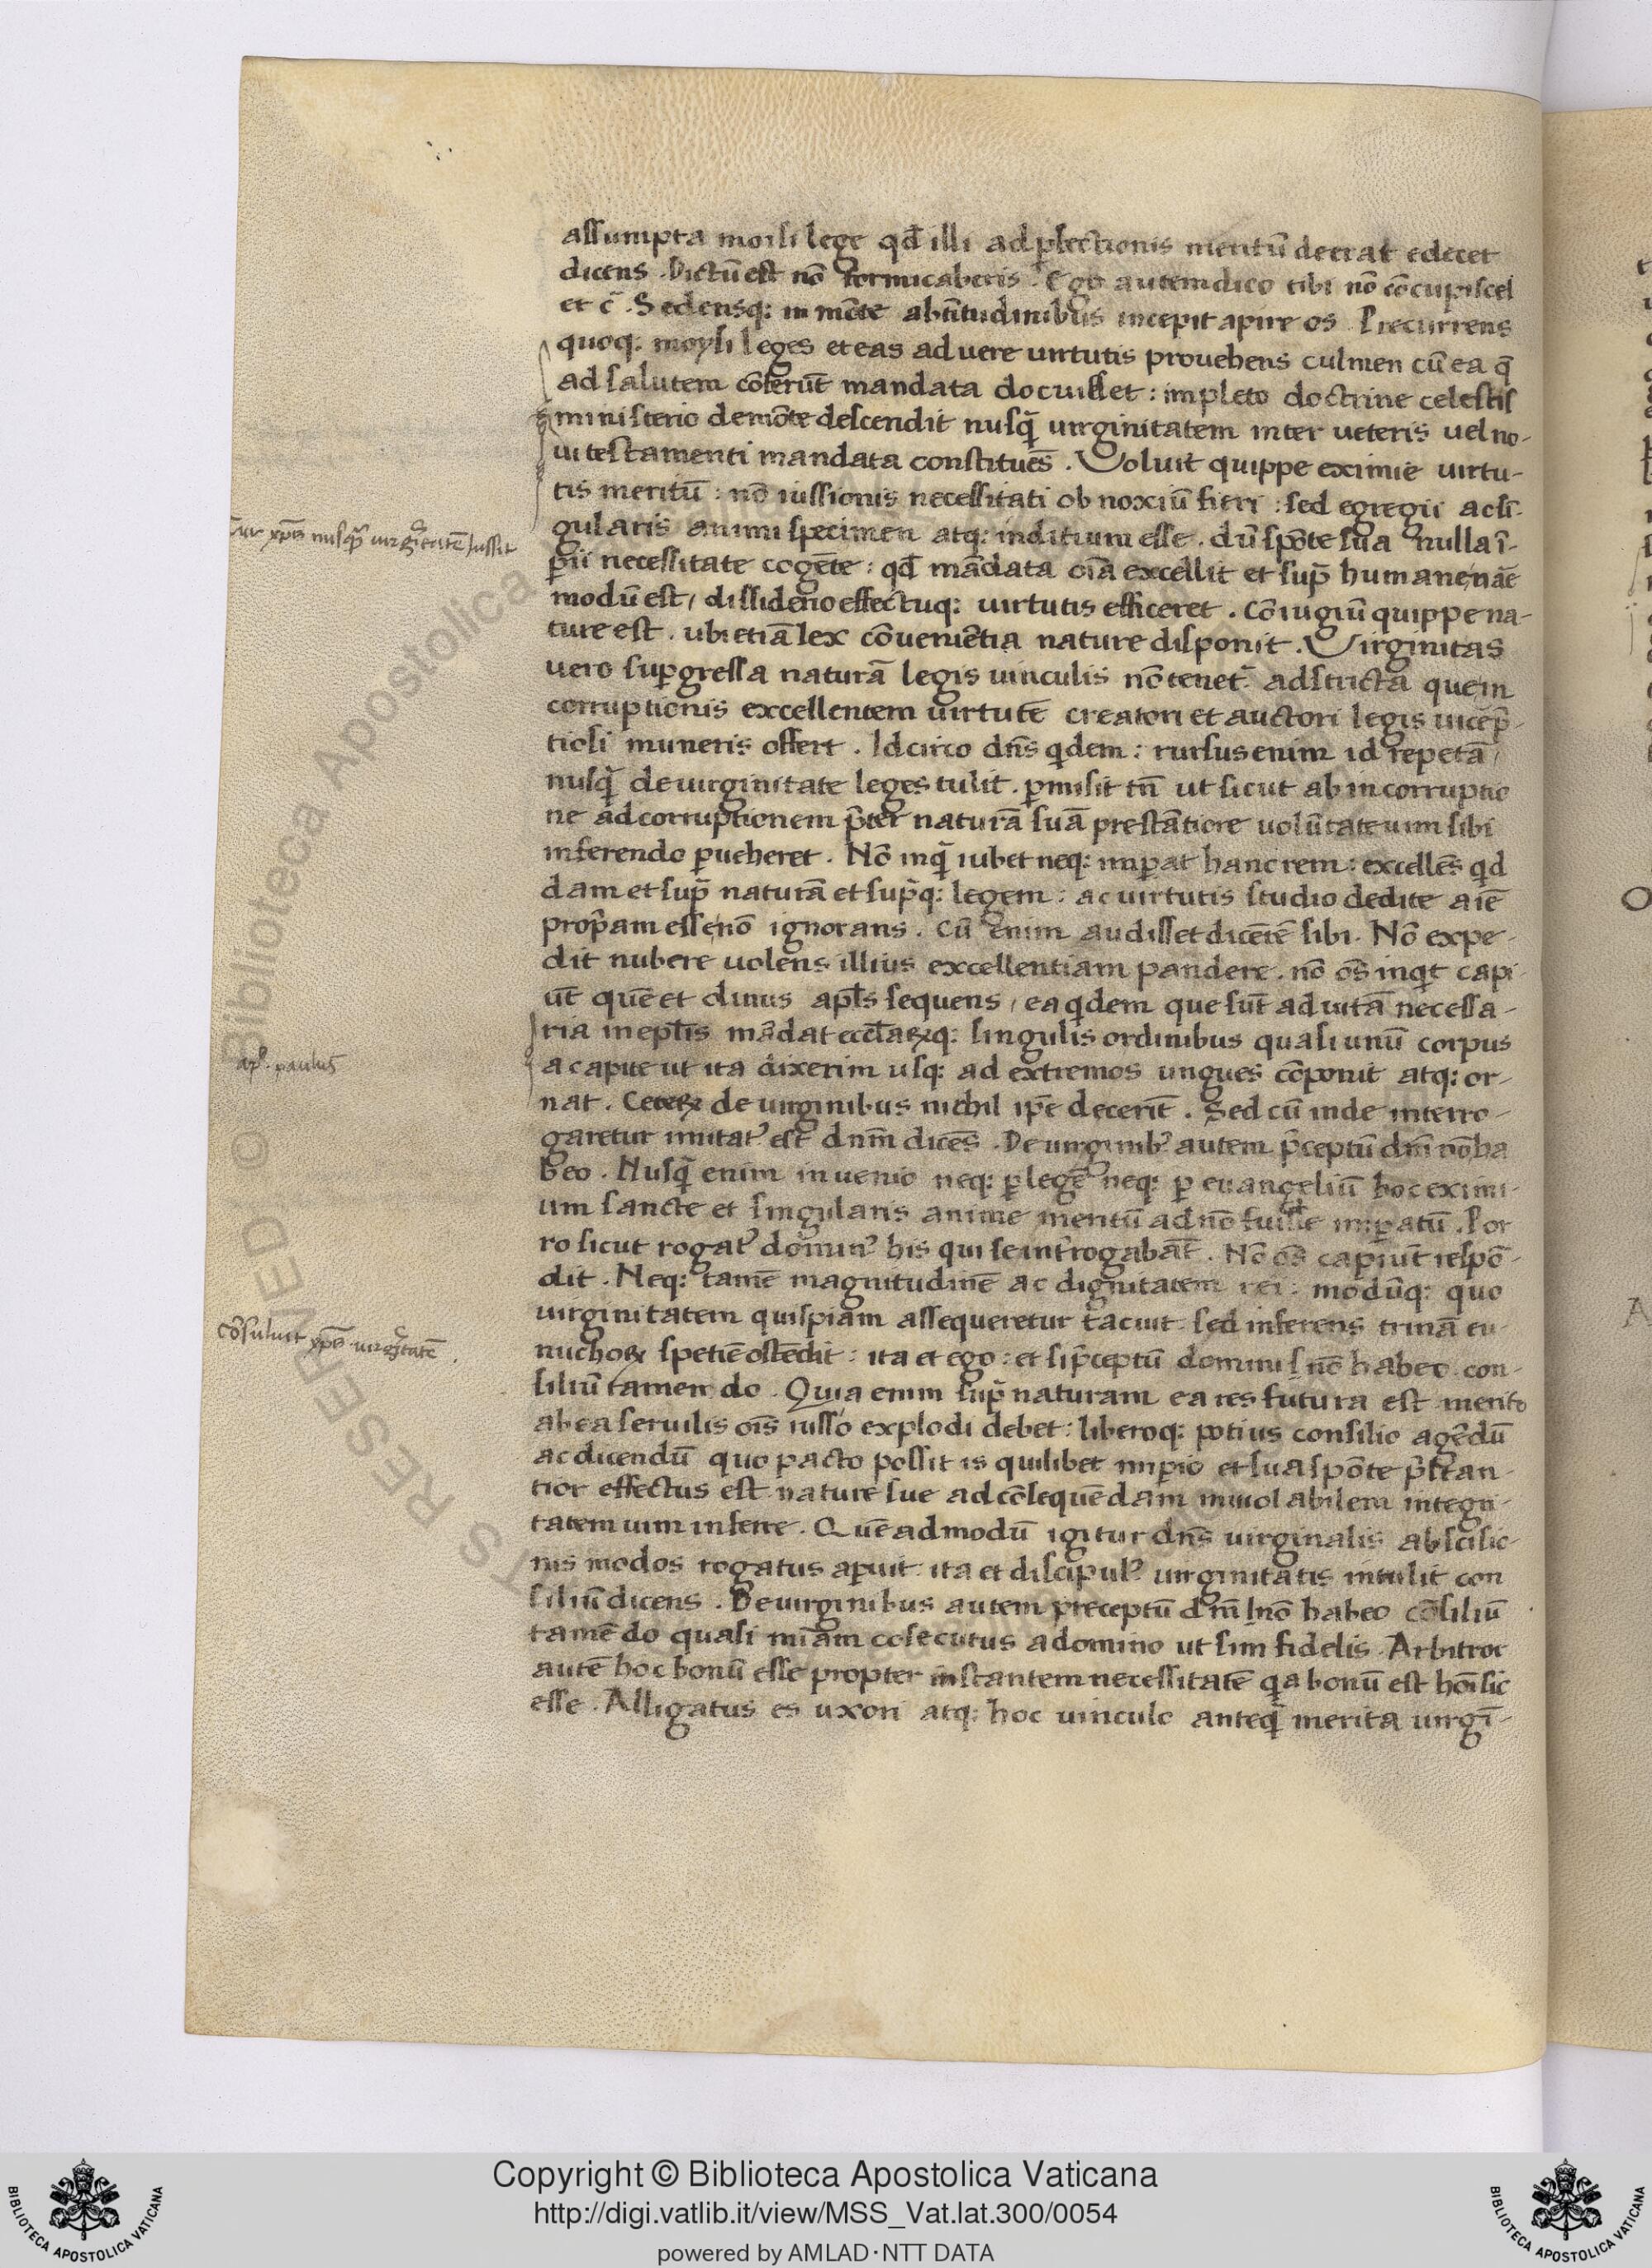 assumpta moisi lege qd̄ illi ad ꝑfectionis meritū deerat edocet
dicens . Dictū est nō fornicaberis . Ego autem dico tibi nō cōcupisces
et c̄ . Sedensq: in mōte abtitudinibus incepit apire os . Precurrens
quoq: moysi leges et eas ad uere uirtutis prouehens culmen cū ea q̄
ad salutem cōferūt mandata docuisset : impleto doctrine celestis
ministerio de mōte descendit nusq̄ uirginitatem inter ueteris uel no-
ui testamenti mandata constitues̄ . Voluit quippe eximie uirtu-
tis meritū : nō iussionis necessitati obnoxiū fieri : sed egregii ac si-
gularis animi specimen atq: inditium esse . dū spōte sua nulla ī-
perii necessitate cogēte : qd̄ mādata oīa excellit et sup̄ humane nāe
modū est / dissiderio effectuq: uirtutis efficeret . Cōiugiū quippe na-
ture est . ubi etiā lex cōueniētia nature disponit . Virginitas
uero suꝑgressa naturā legis uinculis nō tenet᷑ adstricta que in
corruptionis excellentem uirtutē creatori et auctori legis uice p̄-
tiosi muneris offert . Idcirco dn̄s qdem : rursus enim id repetā /
nusq̄ de uirginitate leges tulit . ꝑmisit tn̄ ut sicut ab incorruptio
ne ad corruptionem p̄ter naturā suā prestātiore uolūtate uim sibi
inferendo ꝑueheret . Nō inq̄ iubet neq: imꝑat hanc rem : excellēs qd
dam et sup̄ naturā et sup̄q: legem : ac uirtutis studio dedite aīe
prop̄am esse nō ignorans . Cū enim audisset dicētē sibi . Nō expe-
dit nubere uolens illius excellentiam pandere . nō os̄ inqt capi
ūt quē et diuus apl̄s sequens / ea qdem que sūt ad uitā necessa-
ria in epl̄is mādat eccl̄aꝝq: singulis ordinibus quasi unū corpus
a capite ut ita dixerim usq: ad extremos ungues cōponit atq: or-
nat . Ceteꝝ de uirginibus nichil ip̄e decerīt . Sed cū inde interro-
garetur imitat᷒ est dn̄m dicēs . De uirginib᷒ autem p̄ceptū dn̄i nō ha
beo . Nusq̄ enim inuenio neq: ꝑ legē neq: ꝑ euangeliū hoc eximi-
um sancte et singularis anime meritū ad nō fuisse imꝑatū . Por
ro sicut rogat᷒ domin᷒ his qui se int̄rogabāt . Nō os̄ capiūt respō-
dit . Neq: tamē magnitudinē ac dignitatem rei : modūq: quo
uirginitatem quispiam assequeretur tacuit . sed inferens trinā eu-
nuchoꝝ spetiē ostēdit : ita et ego : et si p̄ceptū domini nō habeo . con-
siliū tamen do . Quia enim sup̄ naturam ea res futura est merito
ab ea seruilis oīs iussio explodi debet : liberoq: potius consilio agēdū
ac dicendū quo pacto possit is quilibet imꝑio et sua spōte p̄stan-
tior effectus est nature sue ad cōsequēdam inuiolabilem integri-
tatem uim inferre . Quēadmodū igitur dn̄s uirginalis abscisio-
nis modos rogatus aꝑuit . ita et discipul᷒ uirginitatis intulit con
siliū dicens . De uirginibus autem preceptū dn̄i nō habeo cōsiliū
tamē do quasi mīam cosecutus a domino ut sim fidelis . Arbitror
autē hoc bonū esse propter instantem necessitatē qa bonū est hoī sic
esse . Alligatus es uxori atq: hoc uinculo anteq̄ merita uirgi-
Cur xp̄s nusq̄ uirgītatē iussit
apl̄. paulus
cōsuluit xp̄s uirgītatē .
Copyright © Biblioteca Apostolica Vaticana
http://digi.vatlib.it/view/MSS_Vat.lat.300/0054
powered by AMLAD·NTT DATA
BIBLIOTECA APOSTOLICA VATICANA
BIBLIOTECA APOSTOLICA VATICANA